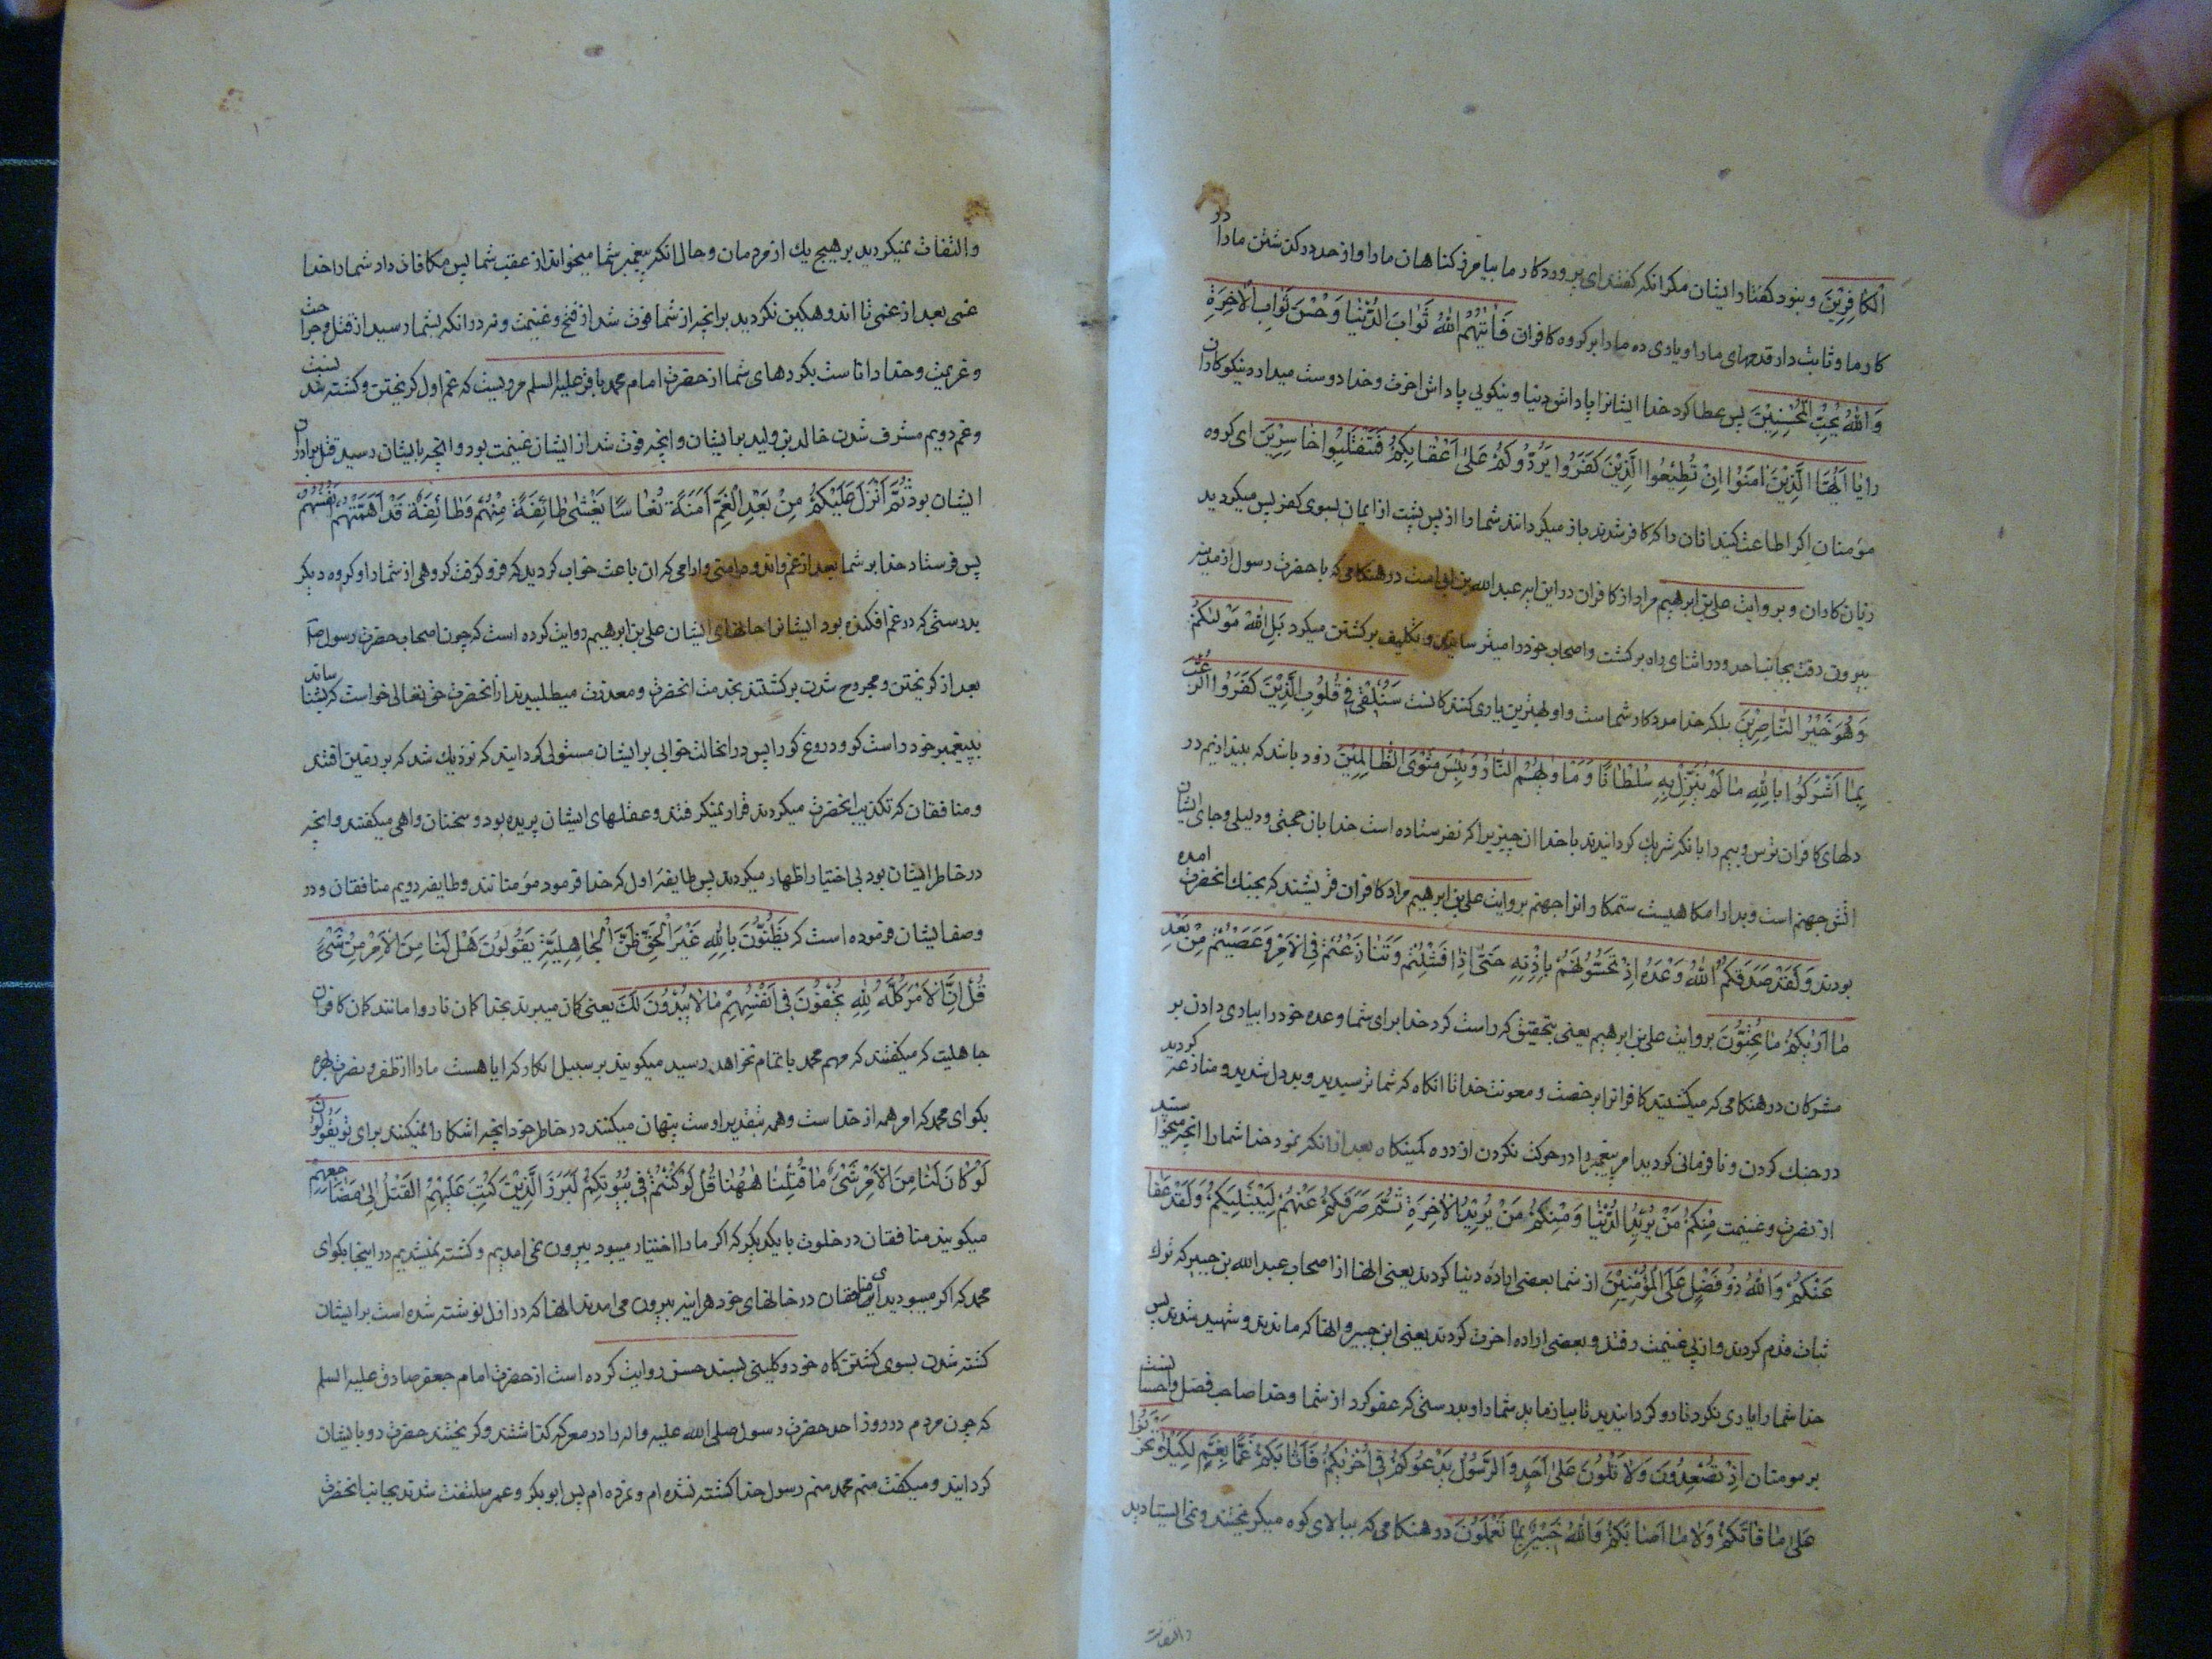 الْكَافِرِيْنَ ونبود گفتار ایشان مگر انکه گفتند ای پروردکار ما بیامرز کناهان ما را و از حد در کذشتن ما را در
کار ما و ثابت دار قدمهای ما را و یاری ده ما را بر کروه کافران فَاٰتٰیهُمُ اللّٰهُ ثَوَابَ الدُّنْیٰا وَحُسْنَ ثَوٰابِ الْاٰخِرَةِ
وَاللّٰهُ یُحِبُّ الْمُحْسِنِیْنَ پس عطا کرد خدا ایشانرا پاداش دنیا و نیکویی پاداش اخرت و خدا دوست میدارد نیکوکاران
را یٰا اَیُّهَا الَّذِیْنَ اٰمَنُوْا اِنْ تُطِیْعُوا الَّذِیْنَ کَفَرُوا یَرُدُّوکُمْ عَلٰی اَعْقٰابِکُمْ فَتَنْقَلِبُوا خٰاسِرِیْنَ ای کروه
مؤمنان اکر اطاعت کنید انان را که کافر شدند باز میکردانند شما را از پس پشت از ایمان بسوی کفر پس میکردید
زیان کاران و بروایت علی بن ابرهیم مراد از کافران در این ایه عبد الله بن ابی است در هنکامی که با حضرت رسول از مدینه
بیرون رفت بجانب احد و در اثنای راه برکشت و اصحاب خود را میترسانید و تکلیف برکشتن میکرد بَلِ اللّٰهُ مَوْلٰیکُمْ
وَهُوَ خَیْرُ النّٰاصِرِیْنَ بلکه خدا مددکار شماست و او بهترین یاری کنندکانست سَنُلْقِی فِی قُلُوبِ الَّذِیْنَ کَفَرُوا الرُّعْبَ
بِمٰا اَشْرَکُوا بِاللّٰهِ مٰا لَمْ یُنَزِّلْ بِهِ سُلْطٰانًا وَمَاْوٰیهُمُ النّٰارُ وَبِئْسَ مَثْوَی الظّٰالِمِیْنَ زود باشد که بیندازیم در
دلهای کافران ترس و بیم را بانکه شریک کردانیدند با خدا ان چیزیرا که نفرستاده است خدا بان حجتی و دلیلی و جای ایشان
اتش جهنم است و بد ارامکاهیست ستمکارانرا جهنم بروایت علی بن ابرهیم مراد کافران قریشند که بجنک انحضرت امده
بودند وَلَقَدْ صَدَقَکُمُ اللّٰهُ وَعْدَهُ اِذْ تَحُسُّونَهُمْ بِاِذْنِهِ حَتّٰی اِذٰا فَشِلْتُمْ وَتَنٰازَعْتُمْ فِی الْاَمْرِ وَعَصَیْتُمْ مِنْ بَعْدِ
مٰا اَرٰیکُمْ مٰا تُحِبُّونَ بروایت علی بن ابرهیم یعنی بتحقیق که راست کرد خدا برای شما وعده خود را بیاری دادن بر
مشرکان در هنکامی که میکشتید کافرانرا برخصت و معونت خدا تا انکاه که شما ترسیدید و بد دل شدید و منازعه کردید
در جنک کردن و نافرمانی کردید امر پیغمبر را در حرکت نکردن از دره کمینکاه بعد از انکه نمود خدا شما را انچه میخواستید
از نصرت و غنیمت مِنْکُمْ مَنْ یُرِیْدُ الدُّنْیٰا وَمِنْکُمْ مَنْ یُرِیْدُ الْاٰخِرَةِ ثُمَّ صَرَفَکُمْ عَنْهُمْ لِیَبْتَلِیَکُمْ وَلَقَدْ عَفٰا
عَنْکُمْ وَاللّٰهُ ذُو فَضْلٍ عَلَی الْمُؤْمِنِیْنَ از شما بعضی اراده دنیا کردند یعنی انها از اصحاب عبد الله بن جبیر که ترک
ثبات قدم کردند و از پی غنیمت رفتند و بعضی اراده اخرت کردند یعنی ابن جبیر و انها که ماندند و شهید شدند پس
خدا شما را یاری نکرد تا رو کردانیدید تا بیازماید شما را و بدرستی که عفو کرد از شما و خدا صاحب فضل و احسانست
بر مومنان اِذْ تُصْعِدُونَ وَلٰا تَلْوُنَ عَلٰی اَحَدٍ وَالرَّسُوْلُ یَدْعُوکُمْ فِی اُخْرٰیکُمْ فَاَثٰابَکُمْ غَمًّا بِغَمٍّ لِکَیْلٰا تَحْزَنُوا
عَلٰی مٰا فٰاتَکُمْ وَلٰا مٰا اَصٰابَکُمْ وَاللّٰهُ خَبِیْرٌ بِمٰا تَعْمَلُونَ در هنکامی که ببالای کوه میکریختند و نمی ایستادید
والتفات
والتفات نمیکردید بر هیچ یک از مردمان و حال انکه پیغمبر شما میخواند از عقب شما پس مکافات داد شما را خدا
غمی بعد از غمی تا اندوهکین نکردید بر انچه از شما فوت شد از فتح و غنیمت و نه در انکه بشما رسید از قتل و جراحت
و هزیمت و خدا داناست بکردهای شما از حضرت امام محمد باقر علیه السلم مرویست که غم اول کریختن و کشته شدنست
و غم دویم مشرف شدن خالد بن ولید بر ایشان و انچه فوت شد از ایشان غنیمت بود و انچه بایشان رسید قتل برادران
ایشان بود ثُمَّ اَنْزَلَ عَلَیْکُمْ مِنْ بَعْدِ الْغَمِّ اَمَنَةً نُعٰاسًا یَغْشٰی طٰائِفَةً مِنْکُمْ وَطٰائِفَةٌ قَدْ اَهَمَّتْهُمْ اَنْفُسُهُمْ
پس فرستاد خدا بر شما بعد از غم و اندوه امنی و ارامی که ان باعث خواب کردید که فرو کرفت کروهی از شما را و کروه دیکر
بدرستی که در غم افکنده بود ایشانرا جانهای ایشان علی بن ابرهیم روایت کرده است که چون اصحاب حضرت رسول ص
بعد از کریختن و مجروح شدن برکشتند بخدمت انحضرت و معذرت میطلبیدند از انحضرت حق تعالی خواست که بشناساند
بپیغمبر خود راست کو و دروغ کو را پس در انحالت خوابی بر ایشان مستولی کردانید که نزدیک شد که بر زمین افتند
و منافقان که تکذیب انحضرت میکردند قرار نمیکرفتند و عقلهای ایشان پریده بود و سخنان واهی میکفتند و انچه
در خاطر ایشان بود بی اختیار اظهار میکردند پس طایفه اول که خدا فرمود مؤمنانند و طایفه دویم منافقان و در
وصف ایشان فرموده است که یَظُنُّونَ بِاللّٰهِ غَیْرَ الْحَقِّ ظَنَّ الْجٰاهِلِیَّةِ یَقُولُونَ هَلْ لَنٰا مِنَ الْاَمْرِ مِنْ شَیْءٍ
قُلْ اِنَّ الْاَمْرَ کُلَّهُ لِلّٰهِ یُخْفُونَ فِی اَنْفُسِهِمْ مٰا لٰا یُبْدُونَ لَکَ یعنی کمان میبرند بخدا کمان ناروا مانند کمان کافران
جاهلیت که میکفتند که مهم محمد باتمام نخواهد رسید میکویند بر سبیل انکار که ایا هست ما را از ظفر و نصرت بهره
بکو ای محمد که امر همه از خداست و همه بتقدیر اوست پنهان میکنند در خاطر خود انچه اشکارا نمیکنند برای تو یَقُولُونَ
لَوْ کٰانَ لَنٰا مِنَ الْاَمْرِ شَیْءٌ مٰا قُتِلْنٰا هٰهُنٰا قُلْ لَوْ کُنْتُمْ فِی بُیُوتِکُمْ لَبَرَزَ الَّذِیْنَ کُتِبَ عَلَیْهِمُ الْقَتْلُ اِلٰی مَضٰاجِعِهِمْ
میکویند منافقان در خلوت با یکدیکر که اکر ما را اختیار میبود بیرون نمی امدیم و کشته نمیشدیم در اینجا بکو ای
محمد که اکر میبودید ای منافقان در خانهای خود هراینه بیرون می امدند انها که در ازل نوشته شده است بر ایشان
کشته شدن بسوی کشتن کاه خود و کلینی بسند حسن روایت کرده است از حضرت امام جعفر صادق علیه السلم
که چون مردم در روز احد حضرت رسول صلی الله علیه واله را در معرکه کذاشتند و کریختند حضرت رو بایشان
کردانید و میکفت منم محمد منم رسول خدا کشته نشده ام و نمرده ام پس ابو بکر و عمر ملتفت شدند بجانب انحضرت